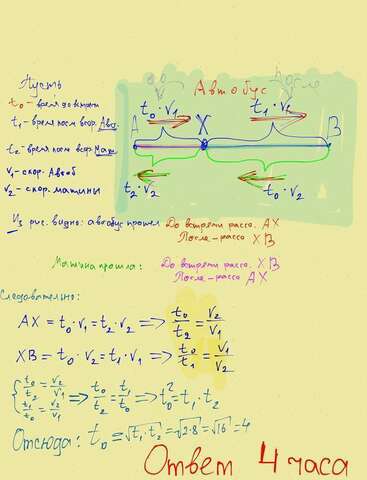 Пусть
t₀ - время до встречи
t₁ - время после встр. Авт.
t₂ - время после встр. Маш.
v₁ - скор. Автоб
v₂ - скор. машины
До После
Автобус
t₀·v₁ t₁·v₁
A X B
t₂·v₂ t₀·v₂
Из рис. видно: автобус прошел До встречи расст. AX
После - расст XB
Машина прошла: До встречи расст. XB
После - расст AX
Следовательно:
AX = t₀·v₁ = t₂·v₂ => t₀/t₂ = v₂/v₁
XB = t₀·v₂ = t₁·v₁ => t₀/t₁ = v₁/v₂
{ t₀/t₂ = v₂/v₁ t₁/t₀ = v₂/v₁ => t₀/t₂ = t₁/t₀ => t₀² = t₁·t₂
Отсюда: t₀ = √t₁·t₂ = √2·8 = √16 = 4
Ответ 4 часа